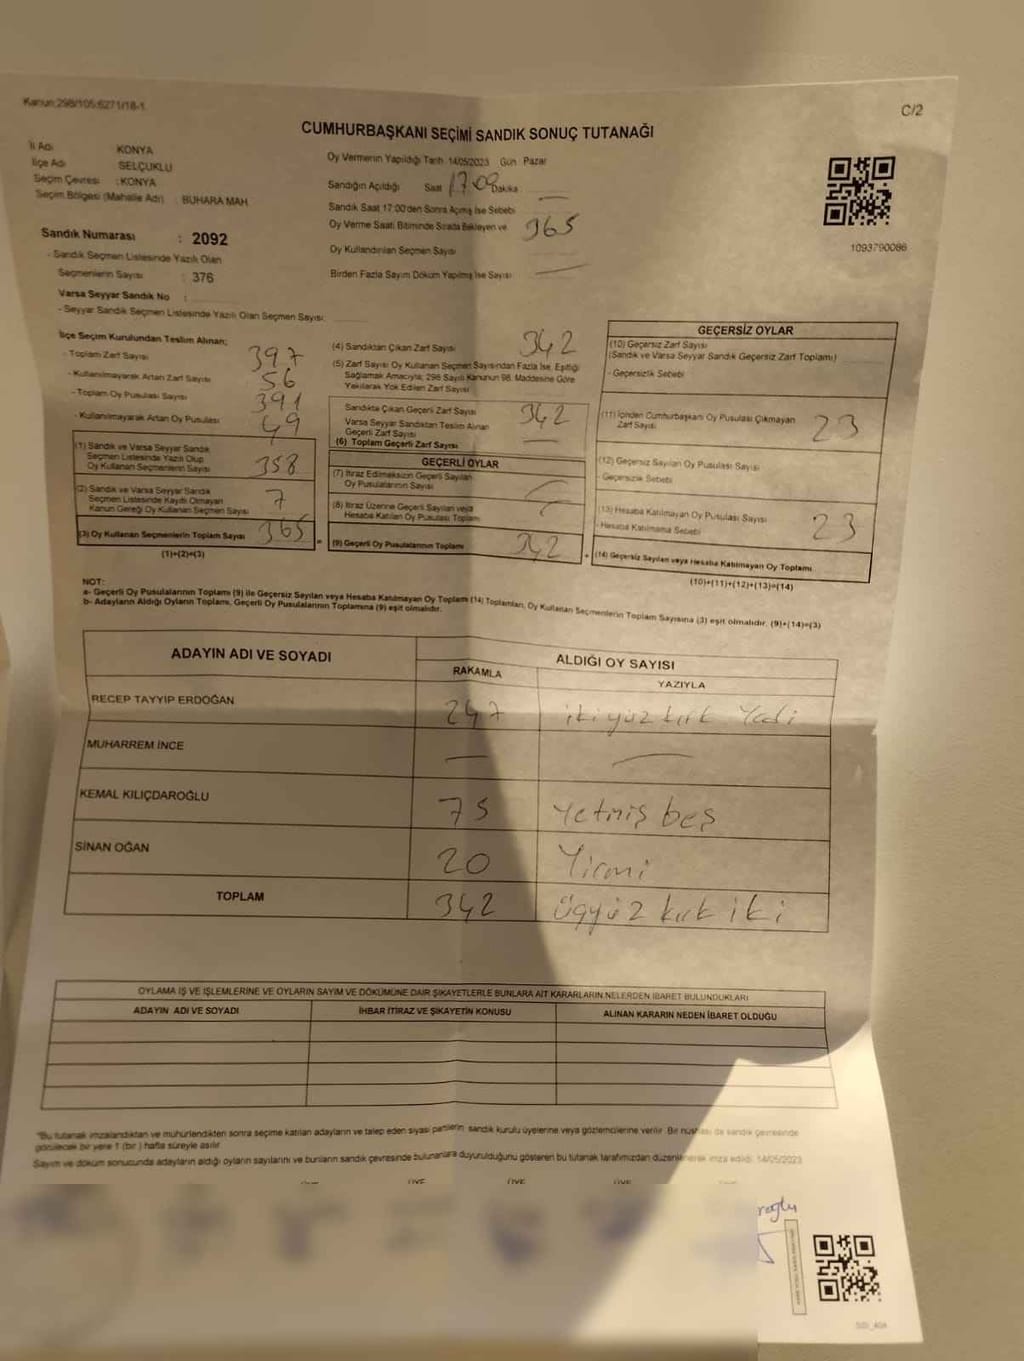 Kanun:298/105:6271/18-1
C/2
CUMHURBAŞKANI SEÇİMİ SANDIK SONUÇ TUTANAĞI
İl Adı KONYA
İlçe Adı SELÇUKLU
Seçim Çevresi : KONYA
Seçim Bölgesi (Mahalle Adı) : BUHARA MAH
Sandık Numarası : 2092
- Sandık Seçmen Listesinde Yazılı Olan
Seçmenlerin Sayısı : 376
Varsa Seyyar Sandık No :
- Seyyar Sandık Seçmen Listesinde Yazılı Olan Seçmen Sayısı:
Oy Vermenin Yapıldığı Tarih 14/05/2023 Gün Pazar
Sandığın Açıldığı Saat 17:09 Dakika
Sandık Saat 17:00'den Sonra Açmış İse Sebebi
Oy Verme Saati Bitiminde Sırada Bekleyen ve 365
Oy Kullandırılan Seçmen Sayısı
Birden Fazla Sayım Döküm Yapılmış İse Sayısı
1093790086
İlçe Seçim Kurulundan Teslim Alınan;
- Toplam Zarf Sayısı 397
- Kullanılmayarak Artan Zarf Sayısı 56
- Toplam Oy Pusulası Sayısı 391
- Kullanılmayarak Artan Oy Pusulası 49
(1) Sandık ve Varsa Seyyar Sandık
Seçmen Listesinde Yazılı Olup
Oy Kullanan Seçmenlerin Sayısı 358
(2) Sandık ve Varsa Seyyar Sandık
Seçmen Listesinde Kayıtlı Olmayan
Kanun Gereği Oy Kullanan Seçmen Sayısı 7
(3) Oy Kullanan Seçmenlerin Toplam Sayısı 365
(1)+(2)=(3)
(4) Sandıktan Çıkan Zarf Sayısı 342
(5) Zarf Sayısı Oy Kullanan Seçmen Sayısından Fazla İse, Eşitliği
Sağlamak Amacıyla; 298 Sayılı Kanunun 98. Maddesine Göre
Yakılarak Yok Edilen Zarf Sayısı
Sandıkta Çıkan Geçerli Zarf Sayısı 342
Varsa Seyyar Sandıktan Teslim Alınan
Geçerli Zarf Sayısı
(6) Toplam Geçerli Zarf Sayısı
GEÇERLİ OYLAR
(7) İtiraz Edilmeksizin Geçerli Sayılan
Oy Pusulalarının Sayısı
(8) İtiraz Üzerine Geçerli Sayılan veya
Hesaba Katılan Oy Pusulası Toplam
(9) Geçerli Oy Pusulalarının Toplamı 342
GEÇERSİZ OYLAR
(10) Geçersiz Zarf Sayısı
(Sandık ve Varsa Seyyar Sandık Geçersiz Zarf Toplamı)
- Geçersizlik Sebebi
(11) İçinden Cumhurbaşkanı Oy Pusulası Çıkmayan
Zarf Sayısı 23
(12) Geçersiz Sayılan Oy Pusulası Sayısı
- Geçersizlik Sebebi
(13) Hesaba Katılmayan Oy Pusulası Sayısı
- Hesaba Katılmama Sebebi 23
(14) Geçersiz Sayılan veya Hesaba Katılmayan Oy Toplamı
(10)+(11)+(12)+(13)=(14)
NOT:
a- Geçerli Oy Pusulalarının Toplamı (9) ile Geçersiz Sayılan veya Hesaba Katılmayan Oy Toplam (14) Toplamları, Oy Kullanan Seçmenlerin Toplam Sayısına (3) eşit olmalıdır. (9)+(14)=(3)
b- Adayların Aldığı Oyların Toplamı, Geçerli Oy Pusulalarının Toplamına (9) eşit olmalıdır.
ADAYIN ADI VE SOYADI ALDIĞI OY SAYISI
RAKAMLA YAZIYLA
RECEP TAYYIP ERDOĞAN 247 iki yüz kırk yedi
MUHARREM İNCE
KEMAL KILIÇDAROĞLU 75 yetmiş beş
SİNAN OĞAN 20 Yirmi
TOPLAM 342 üçyüz kırk iki
OYLAMA İŞ VE İŞLEMLERİNE VE OYLARIN SAYIM VE DÖKÜMÜNE DAİR ŞİKAYETLERLE BUNLARA AİT KARARLARIN NELERDEN İBARET BULUNDUKLARI
ADAYIN ADI VE SOYADI İHBAR İTİRAZ VE ŞİKAYETİN KONUSU ALINAN KARARIN NEDEN İBARET OLDUĞU
"Bu tutanak imzalandıktan ve mühürlendikten sonra seçime katılan adayların ve talep eden siyasi partilerin sandık kurulu üyelerine veya gözlemcilerine verilir. Bir nüshası da sandık çevresinde
görülecek bir yere 1 (bir) hafta süreyle asılır.
Sayım ve döküm sonucunda adayların aldığı oyların sayılarını ve bunların sandık çevresinde bulunanlara duyurulduğunu gösteren bu tutanak tarafımızdan düzenlenerek imza edildi. 14/05/2023
ÜYE ÜYE ÜYE ÜYE
roğlu